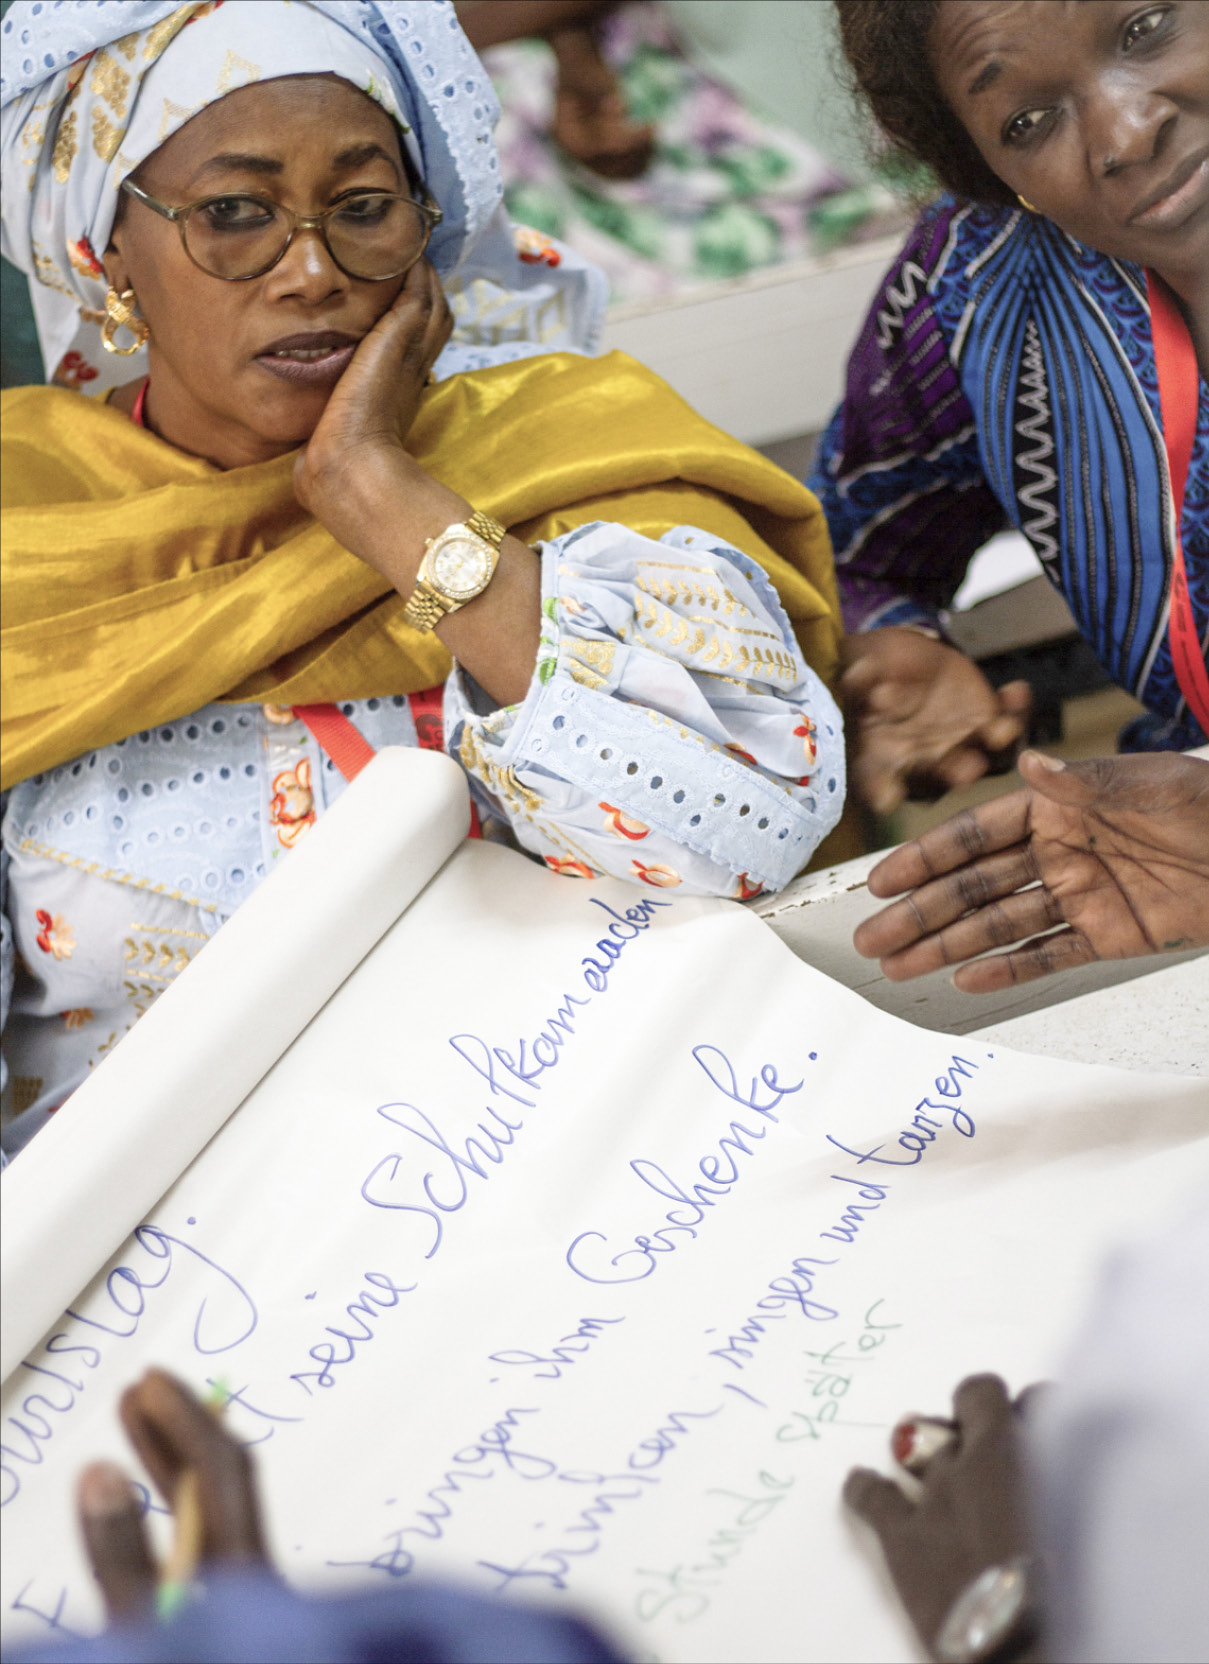 seine Schulkameraden
bringen ihm Geschenke.
trinken, singen und tanzen.
Stunde später